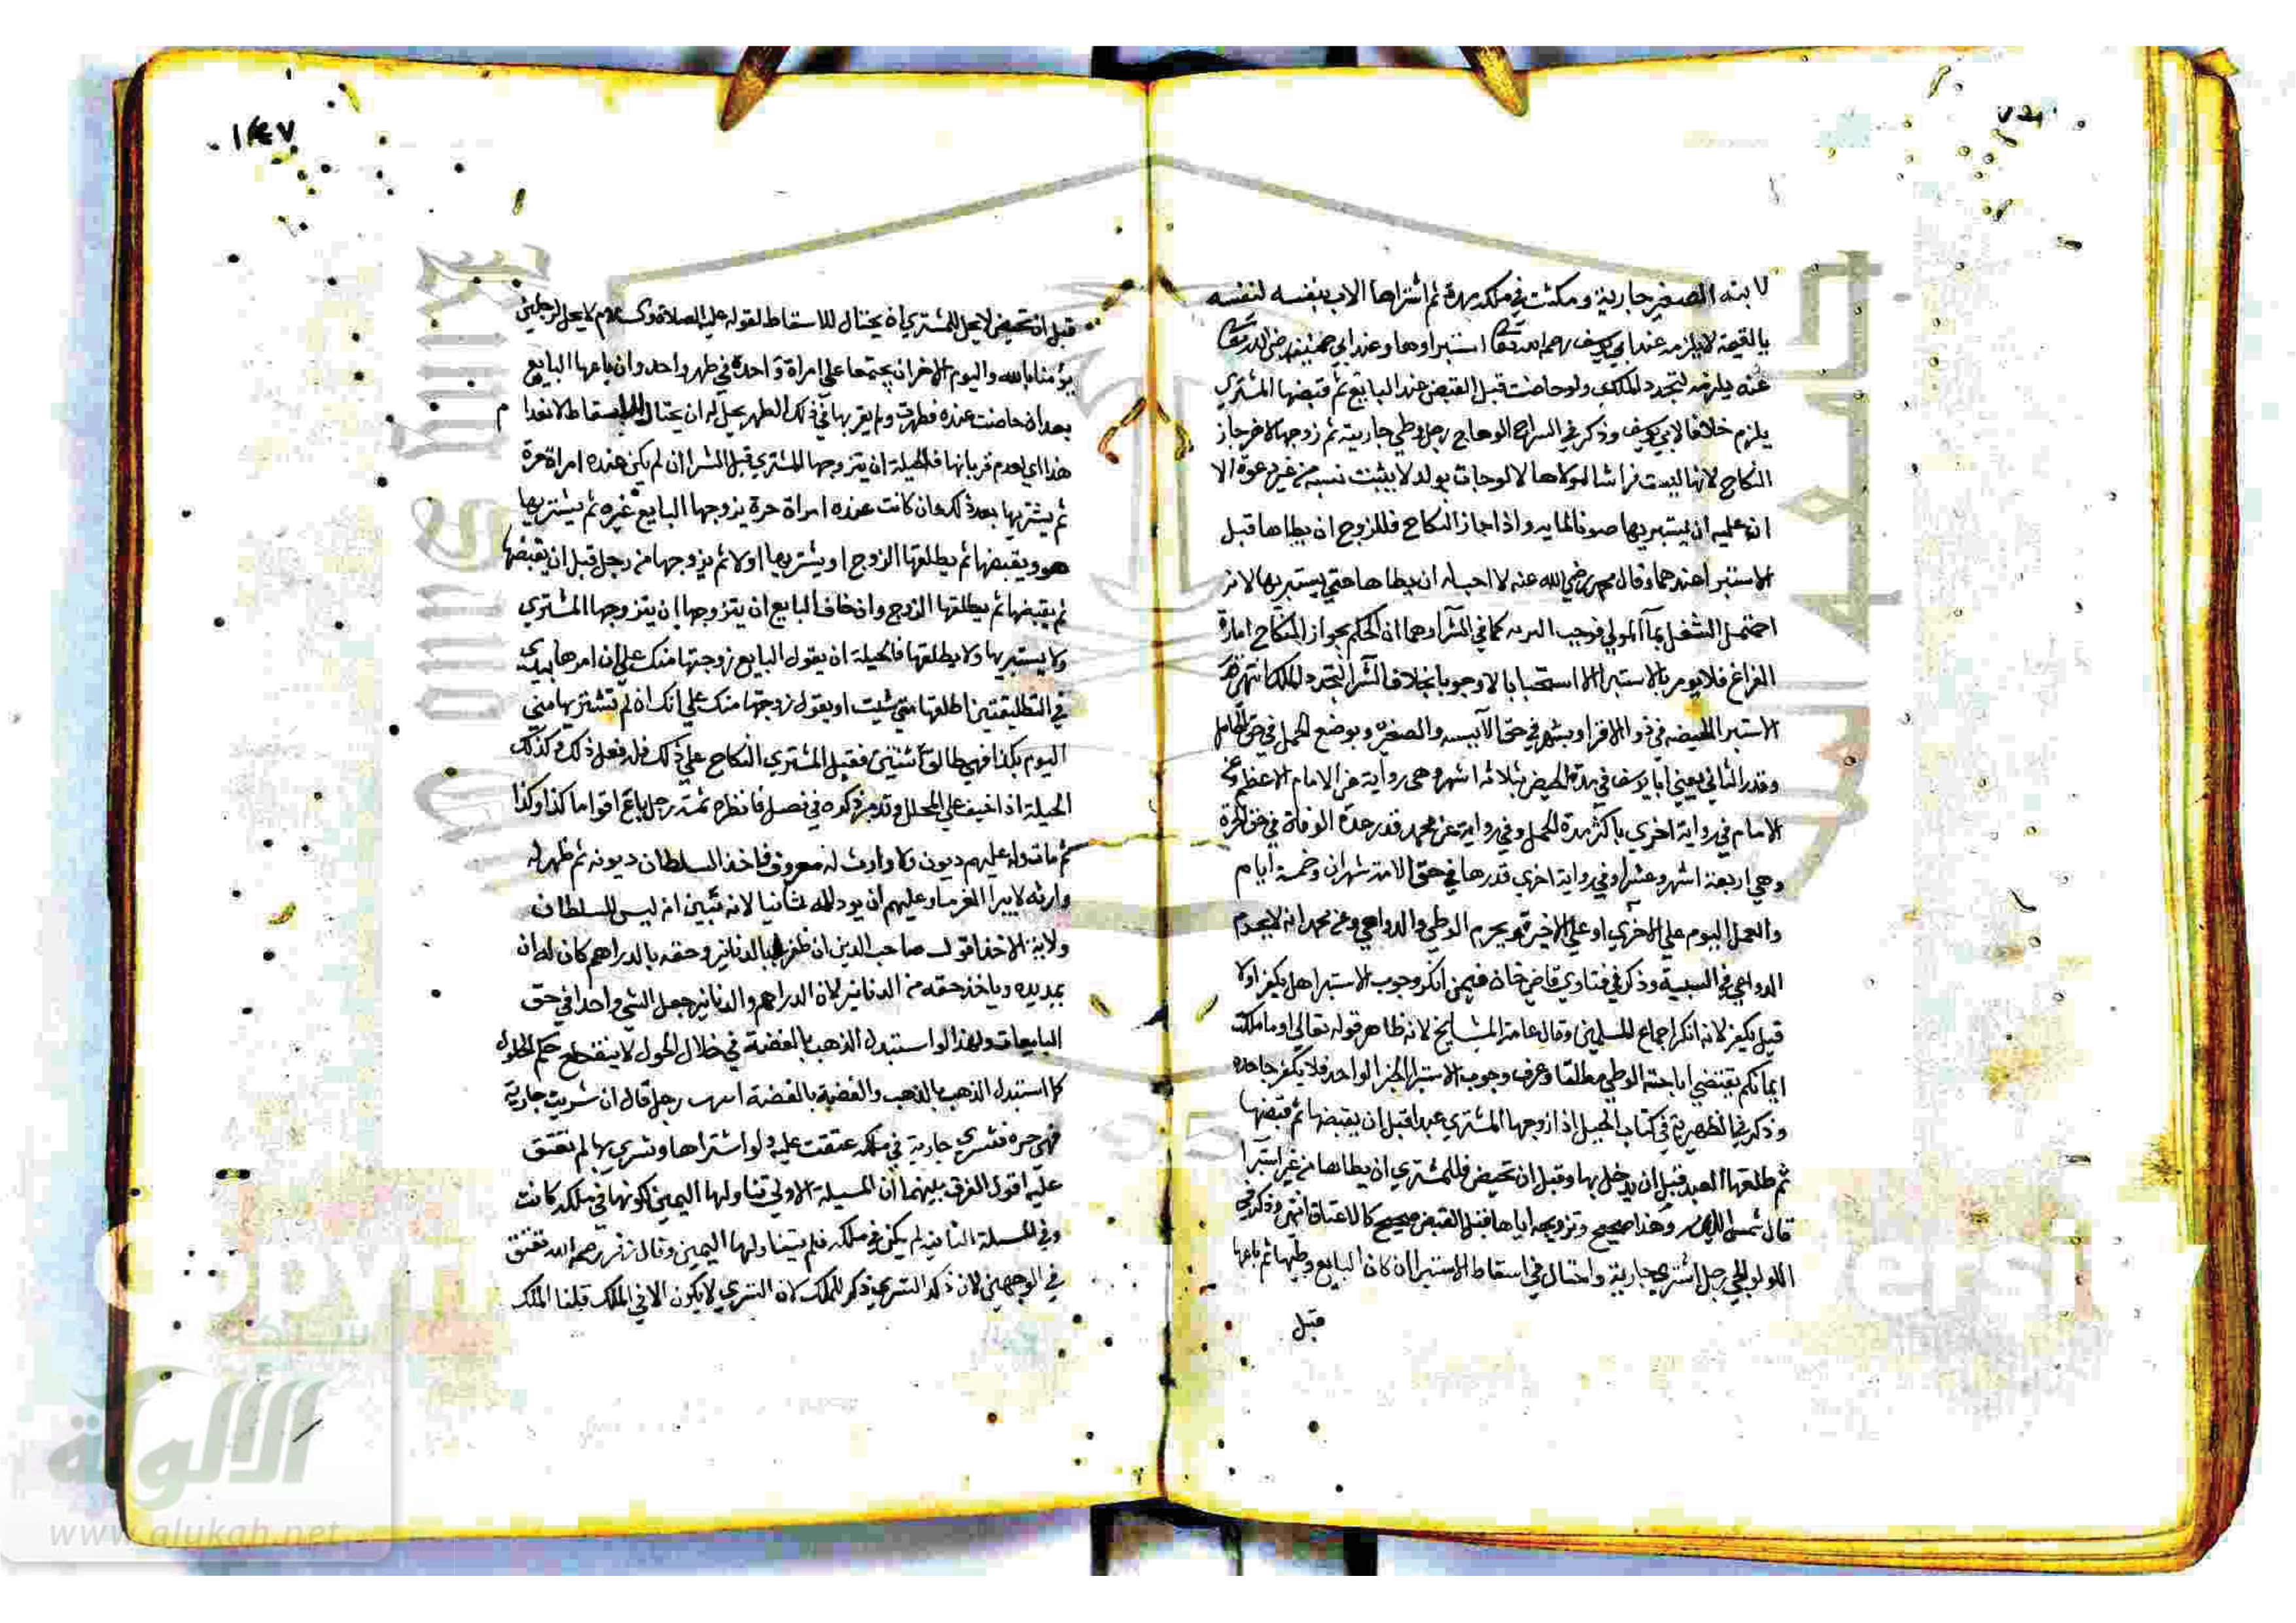 لابنه الصغير جارية ومكثت في ملكه مدة ثم اشتراها الاب بنفسه لنفسه
بالقيمة لا يلزمه عند ابي يوسف رحمه الله تعالى استبراوها وعند ابي حنيفة رضي الله تعالى
عنه يلزمه لتجدد الملك ولو حاضت قبل القبض عند البايع ثم قبضها المشتري
يلزم خلافا لابي يوسف وذكر في السراج الوهاج رجل وطي جاريته ثم زوجها لاخر جاز
النكاح لانها ليست فراشا لمولاها لانها لو جات بولد لا يثبت نسبه من غير دعوة الا
ان عليه ان يستبريها صونا لمايه واذا جاز النكاح فللزوج ان يطاها قبل
الاستبرا عندهما وقال محمد رضي الله عنه لا احب له ان يطاها حتى يستبريها لانه
احتمل الشغل بمآ المولي فوجب التنزه كما في الشرآ ولهما ان الحكم بجواز النكاح امارة
الفراغ فلا يومر بالاستبرا لا استحبابا ولا وجوبا بخلاف الشرآ لتجدد الملك انتهى
الاستبرا بالحيضة في ذوات الاقرا وبشهر في حق الآيسه والصغيره وبوضع الحمل في حق الحامل
وقدر الثاني يعني ابا يوسف في مدة الحيض بثلاثة اشهر وهي رواية عن الامام الاعظم وعن
الامام في رواية اخري باكثر مدة الحمل وفي رواية عن محمد قدر عدة الوفاة في حق الحرة
وهي اربعة اشهر وعشرا وفي رواية اخري قدرها في حق الامة شهران وخمسة ايام
والعمل اليوم علي الاخري او علي الاخيرة ويحرم الوطي والدواعي وعن محمد انه لا يحرم
الدواعي في السبية وذكر في فتاوي قاضي خان فيمن انكر وجوب الاستبرا هل يكفر اولا
قيل يكفر لانه انكر اجماع المسلمين وقال عامة المشايخ لا نه ظاهر قوله تعالى او ما ملكت
ايمانكم يقتضي اباحة الوطي مطلقا وعرف وجوب الاستبرا بخبر الواحد فلا يكفر جاحده
وذكر في الظهيرية في كتاب الحيل اذا زوجها المشتري عبدا قبل ان يقبضها ثم قبضها
ثم طلقها العبد قبل ان يدخل بها وقبل ان تحيض فللمشتري ان يطاها من غير استبرآ
قال شمس الايمه وهذا صحيح وتزويجه اياها قبل القبض صحيح كالاعتاق انتهى وذكر في
اللولوالجي رجل اشتري جارية واحتال في اسقاط الاستبرا ان كان البايع وطيها ثم باعها
قبل
١٤٧
قبل ان تحيض لا يحل للمشتري ان يحتال للاسقاط لقوله عليه الصلاة والسلام لا يحل لرجلين
يؤمنا بالله واليوم الاخر ان يجتمعا علي امراة واحدة في طهر واحد وان باعها البايع
بعد ان حاضت عنده فطهرت ولم يقربها في ذلك الطهر يحل له ان يحتال للاسقاط لانعدام
هذا اي لعدم قربانها فالحيلة ان يتزوجها المشتري قبل الشرا ان لم يكن عنده امراة حرة
ثم يشتريها بعد ذلك وان كانت عنده امراة حرة يزوجها البايع غيره ثم يشتريها
هو ويقبضها ثم يطلقها الزوج او يشتريها اولا ثم يزوجها من رجل قبل ان يقبضها
ثم يقبضها ثم يطلقها الزوج وان خاف البايع ان يتزوجها ان يتزوجها المشتري
ولا يستبريها ولا يطلقها فالحيلة ان يقول البايع زوجتها منك علي ان امرها بيدي
في التطليقتين اطلقها متي شيت او يقول زوجتها منك علي انك ان لم تشتريها مني
اليوم بكذا فهي طالق اثنتين فقبل المشتري النكاح علي ذلك فله فعل ذلك وكذلك
الحيلة اذا خيف علي المحلل وقد مر ذكره في فصل فانظره ثمة رجل باع اقواما كذا وكذا
ثم مات وله عليهم ديون ولا وارث له معروف فاخذ السلطان ديونه ثم ظهر له
وارثه لا يبرا الغرما وعليهم ان يودوا له ثانيا لانه تبين انه ليس للسلطان
ولاية الاخذ اقول صاحب الدين ان ظفر بالدنانير وحقه بالدراهم كان له ان
يمد يده وياخذ حقه من الدنانير لان الدراهم والدنانير جعل الشي واحدا في حق
البايعات ولهذا لو استبدل الذهب بالفضة في خلال الحول لا ينقطع حكم الحول
كما استبدل الذهب بالذهب والفضة بالفضة رجل قال ان شريت جارية
فهي حرة فشري جارية في ملكه عتقت عليه ولو اشتراها وتسري بها لم تعتق
عليه اقول الفرق بينهما ان المسيلة الاولي تناولها اليمين لكونها في ملكه كانت
وفي المسيلة الثانيه لم يكن في ملكه فلم يتناولها اليمين وقال زفر رحمه الله تعتق
في الوجهين لان ذكر التسري ذكر للملك لان التسري لا يكون الا في الملك قبلنا الملك
شبكة
الألوكة
www.alukah.net